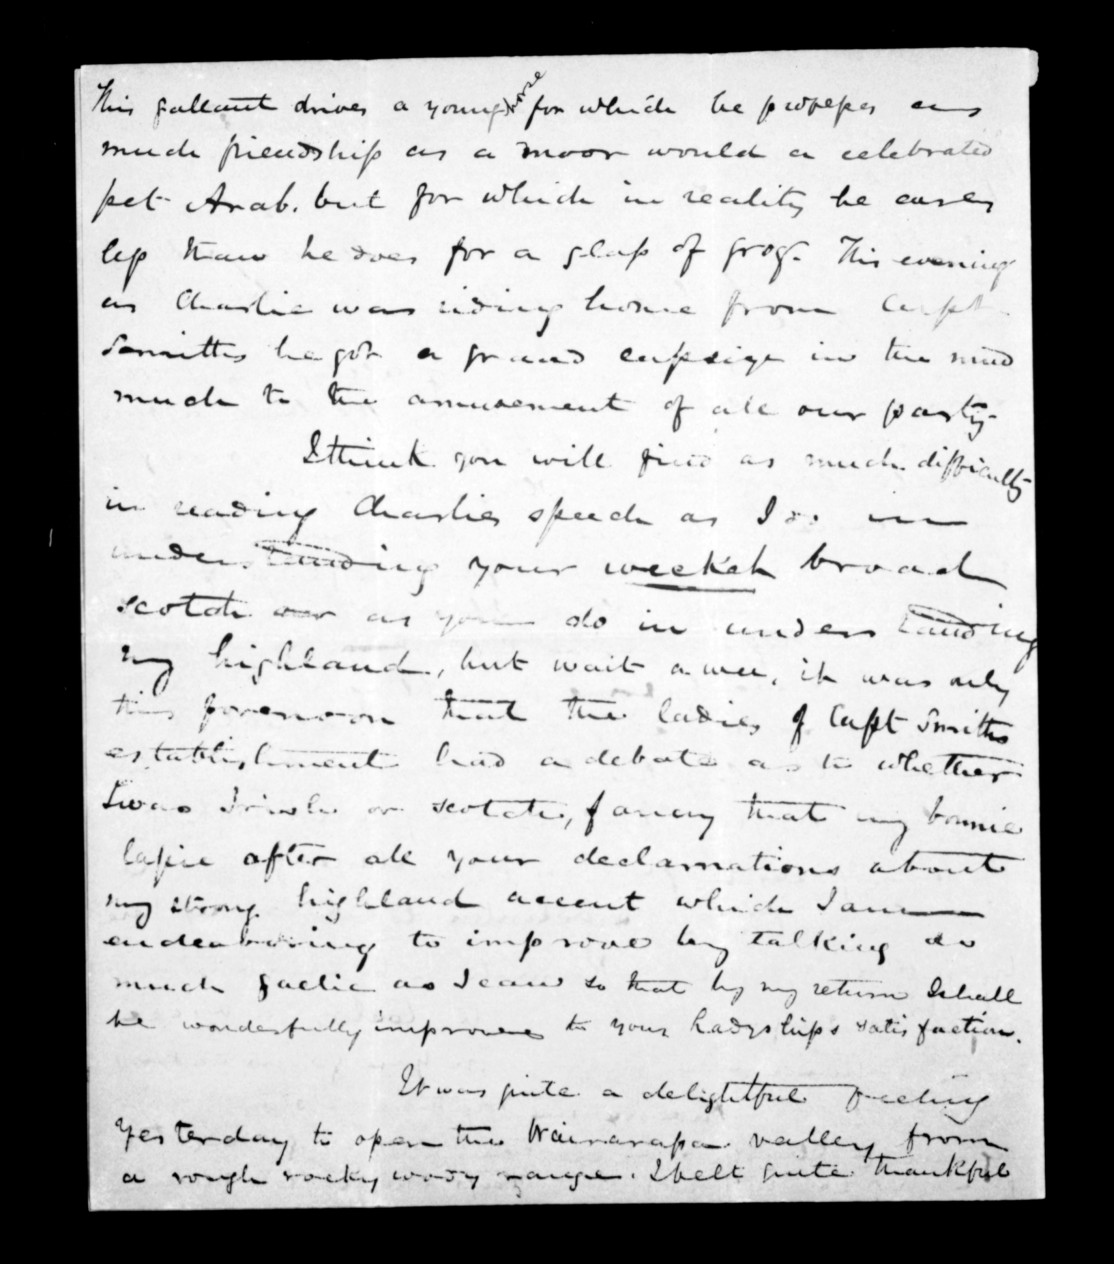 This gallant drives a young horse for which he professes as
much friendship as a moor would a celebrated
pet Arab. but for which in reality he cares
less than he does for a glass of grog. This evening
as Charlie was riding home from Capt
Smiths he got a grand capsize in the mud
much to the amusement of all our party.
I think you will find as much difficulty
in reading Charlies speech as I do in
understanding your weekah broad
scotch or as you do in understanding
my highland, but wait a wee, it was only
this forenoon that the ladies of Capt Smiths
establishment had a debate as to whether
I was Irish or scotch, fancy that my bonnie
lassie after all your declamations about
my strong highland accent which I am
endeavoring to improve by talking as
much gaelic as I can so that by my return I shall
be wonderfully improved to your Ladyships satisfaction.
It was quite a delightful feeling
Yesterday to open the Wairarapa valley from
a rough rocky woody range. I felt quite thankful